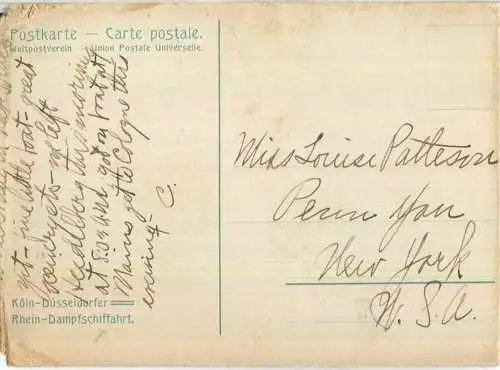 Postkarte — Carte postale.
Weltpostverein — Union Postale Universelle.
yet - nice little boat - great
sandwiches - we left
Heidelberg this morning
at 8:01 and got on boat at
Mainz get to Cologne this
evening - C.
Miss Louise Patteson
Penn Yan
New York
U. S. A.
Köln-Düsseldorfer
Rhein-Dampfschiffahrt.